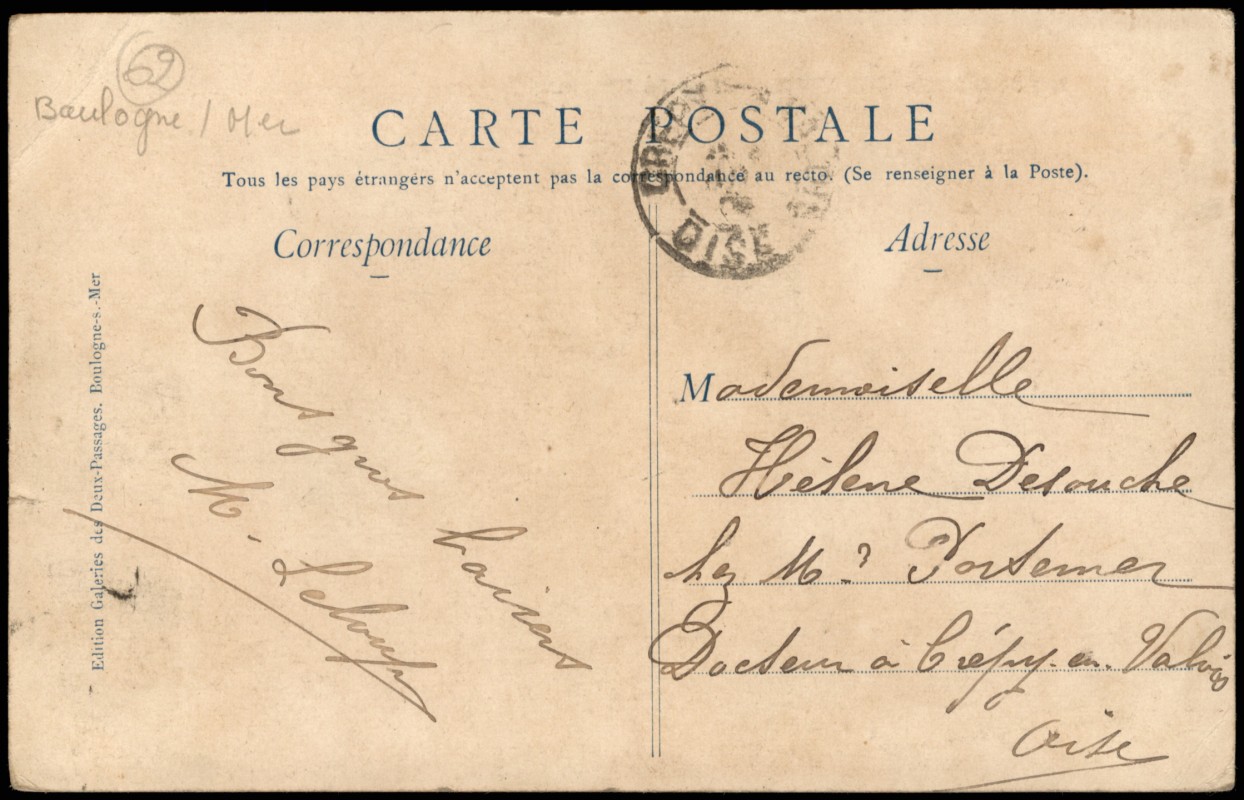 62
Boulogne / Mer
CARTE POSTALE
Tous les pays étrangers n'acceptent pas la correspondance au recto. (Se renseigner à la Poste).
OISE
Correspondance
Adresse
Edition Galeries des Deux-Passages, Boulogne-s.-Mer
Bons gros baisers
M. Leloup
Mademoiselle
Hélène Desouche
chez Mr Portemer
Docteur à Crépy-en-Valois
Oise